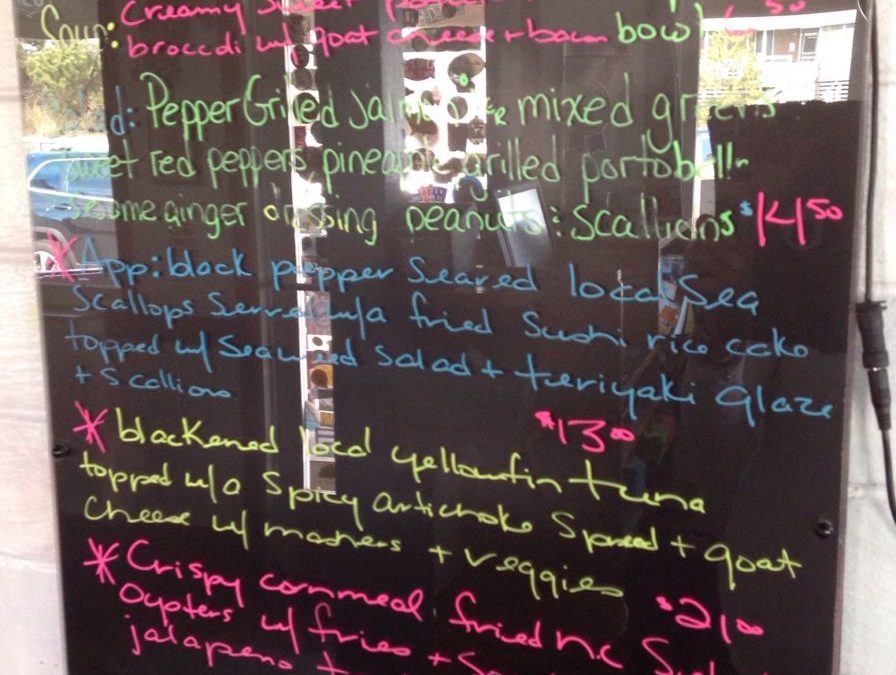 Soup: Creamy Sweet
broccoli w/ goat cheese + bacon bowl 6 50
Pepper Grilled mixed greens
sweet red peppers, pineapple grilled portobello
sesame ginger dressing peanuts : scallions $14 50
* App: black pepper seared local sea
scallops served w/a fried sushi rice cake
topped w/ seaweed salad + teriyaki glaze
+ scallions
$13 00
* blackened local yellowfin tuna
topped w/a spicy artichoke spread + goat
cheese w/ mashers + veggies
$21 00
* Crispy cornmeal fried n.c
oysters w/ fries +
jalapeno